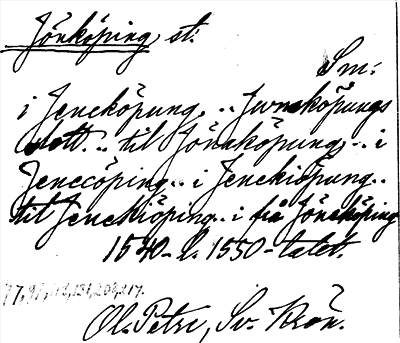 Jönköping, st:
Sm:
i Jeneköpung, .. Juneköpungs
slott... til Jöneköpung... i
Jenecöping... i Jenekiöpung..
til Jenekiöping... i frå Jöneköping
1540- o. 1550-talet.
77, 91, 118, 131, 204, 217.
Ol. Petri, Sv. Krön.